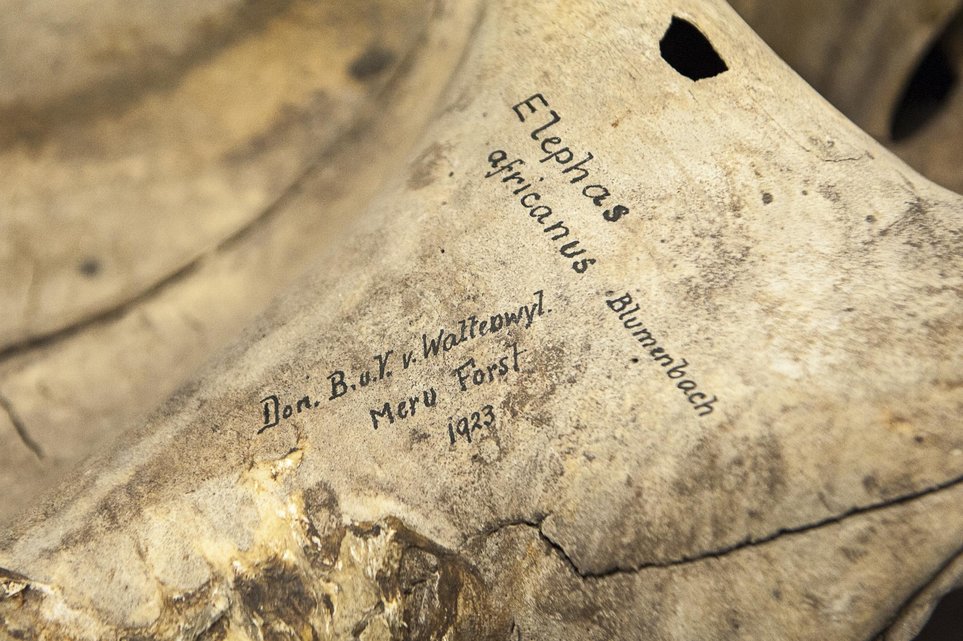 Elephas
africanus
Blumenbach
Don. B.u.V. v. Wattenwyl.
Meru Forst
1923